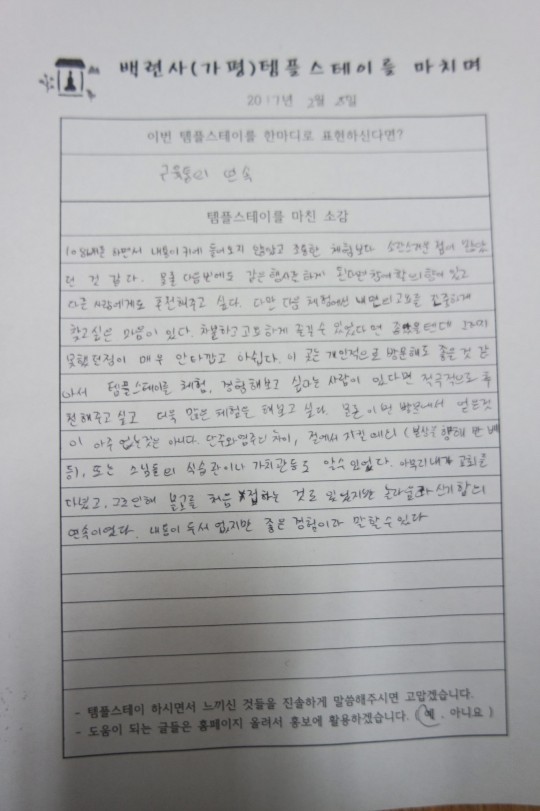 백련사(가평)템플스테이를 마치며
2017년 2월 8일
이번 템플스테이를 한마디로 표현하신다면?
의 연속
템플스테이를 마친 소감
하면서 내용이 귀에 들어오지 않았고 조용한 체험보다 점이 많았
던 것 같다. 물론 다음번에도 같은 행사를 하게 된다면 참여할 의향이 있고
다른 사람에게도 추천해주고 싶다. 다만 다음 체험에선 내면의 고요를
찾고싶은 마음이 있다. 차분하고 고요하게 수 있었다면 좋았을텐데
못했던점이 매우 안타깝고 아쉽다. 이 곳는 개인적으로 방문해도 좋을 것 같
아서 템플스테이를 체험, 경험해보고 싶다는 사람이 있다면 적극적으로 추
천해주고 싶고 더욱 많은 체험을 해보고 싶다. 물론 이번 방문에서 얻은것
이 아주 없는것은 아니다. 단주와 염주의 차이, 절에서 지킨 예의 (불상을 향해 반배
등), 또는 스님들의 식습관이나 가치관등도 알수 있었다. 아무리 내가 교회를
다녔고, 그로인해 불교를 처음 접하는 것도 있었지만 놀라움과 신기함의
연속이었다. 내용이 두서 없지만 좋은 경험이라 말할수 있다
- 템플스테이 하시면서 느끼신 것들을 진솔하게 말씀해주시면 고맙겠습니다.
- 도움이 되는 글들은 홈페이지 올려서 홍보에 활용하겠습니다. ( 예 , 아니요 )